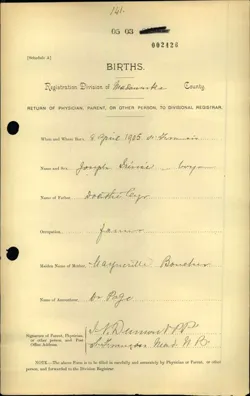 141.
05 03
002126
[Schedule A]
BIRTHS.
Registration Division of Madawaska County.
RETURN OF PHYSICIAN, PARENT, OR OTHER PERSON, TO DIVISIONAL REGISTRAR.
When and Where Born, 8 April 1905 St Francis
Name and Sex, Joseph — boy
Name of Father,
Occupation, farmer
Maiden Name of Mother, Marguerite Boucher
Name of Accoucheur, Dr Page
Signature of Parent, Physician, or other person, and Post Office Address. N. Dumont Ptr
St François Mad N. B.
NOTE.—The above Form is to be filled in carefully and accurately by Physician or Parent, or other person, and forwarded to the Division Registrar.